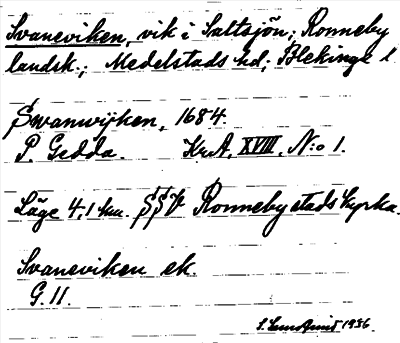 Svaneviken, vik i Saltsjön; Ronneby
landsk.; Medelstads hd; Blekinge l
Swanwijken, 1684.
P. Gedda. Kr.A. XVIII. N:o 1.
Läge 4,1 km. SSV Ronneby stads kyrka.
Svaneviken ek.
G. 11.
1936